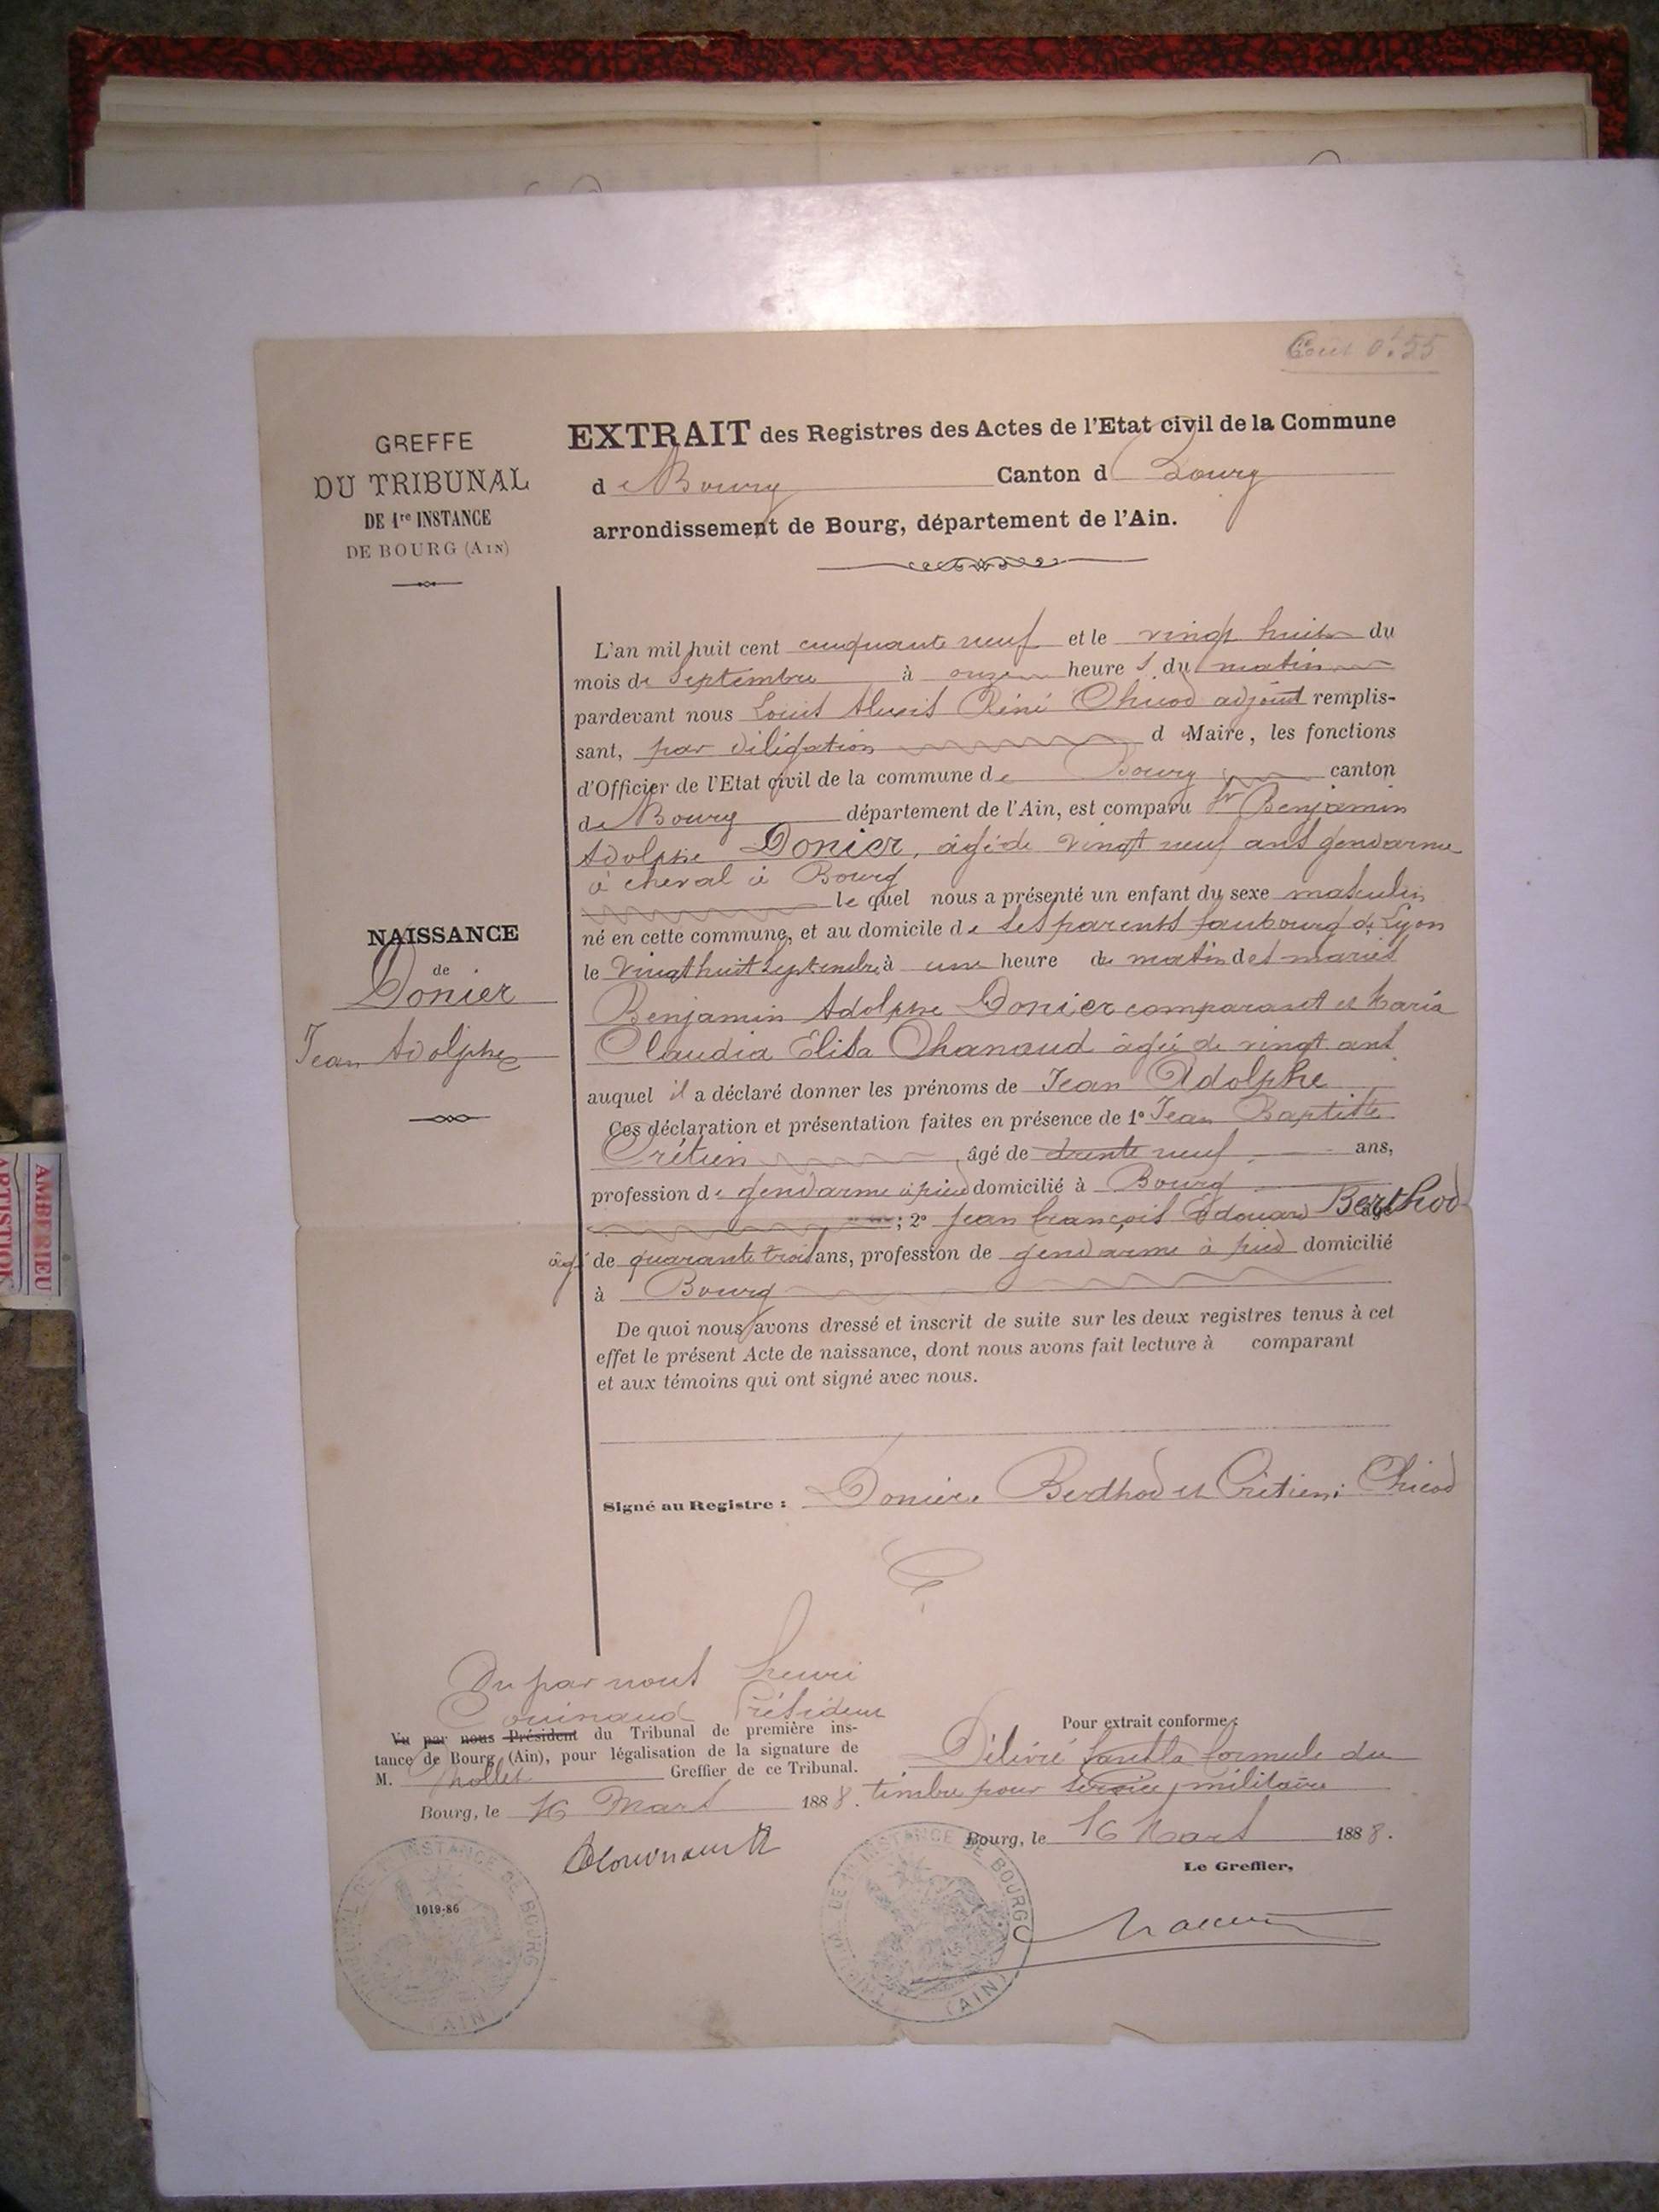 Coût 0f.55
GREFFE
DU TRIBUNAL
DE 1re INSTANCE
DE BOURG (AIN)
EXTRAIT des Registres des Actes de l'Etat civil de la Commune
de Bourg Canton d Bourg
arrondissement de Bourg, département de l'Ain.
L'an mil huit cent cinquante neuf et le vingt huit du
mois de Septembre à onze heures du matin
pardevant nous Louis Alexis Réné Chicod adjoint remplis-
sant, par délégation d Maire, les fonctions
d'Officier de l'Etat civil de la commune de Bourg canton
de Bourg département de l'Ain, est comparu Sr Benjamin
Adolphe Donier, âgé de vingt neuf ans gendarme
à cheval à Bourg
lequel nous a présenté un enfant du sexe masculin
né en cette commune, et au domicile de ses parents faubourg de Lyon
le vingt huit Septembre à une heure du matin des mariés
Benjamin Adolphe Donier comparant et Maria
Claudia Élisa Chanaud âgée de vingt ans
auquel il a déclaré donner les prénoms de Jean Adolphe
Ces déclaration et présentation faites en présence de 1° Jean Baptiste
Crétien âgé de trente neuf ans,
profession de gendarme à pied domicilié à Bourg
; 2° Jean François Edouard Berthod
âgé de quarante trois ans, profession de gendarme à pied domicilié
à Bourg
De quoi nous avons dressé et inscrit de suite sur les deux registres tenus à cet
effet le présent Acte de naissance, dont nous avons fait lecture à comparant
et aux témoins qui ont signé avec nous.
NAISSANCE
de
Donier
Jean Adolphe
Signé au Registre : Donier, Berthod et Crétien; Chicod
Vu par nous henri
Président
Vu par nous Président du Tribunal de première ins-
tance de Bourg (Ain), pour légalisation de la signature de
M. Greffier de ce Tribunal.
Bourg, le 16 Mars 1888.
1019-86
Pour extrait conforme :
Délivré sur la formule du
timbre pour service militaire
Bourg, le 16 Mars 1888.
Le Greffier,
INSTANCE DE BOURG
(AIN)
INSTANCE DE BOURG
(AIN)
AMBERIEU
ARTISTIQUE